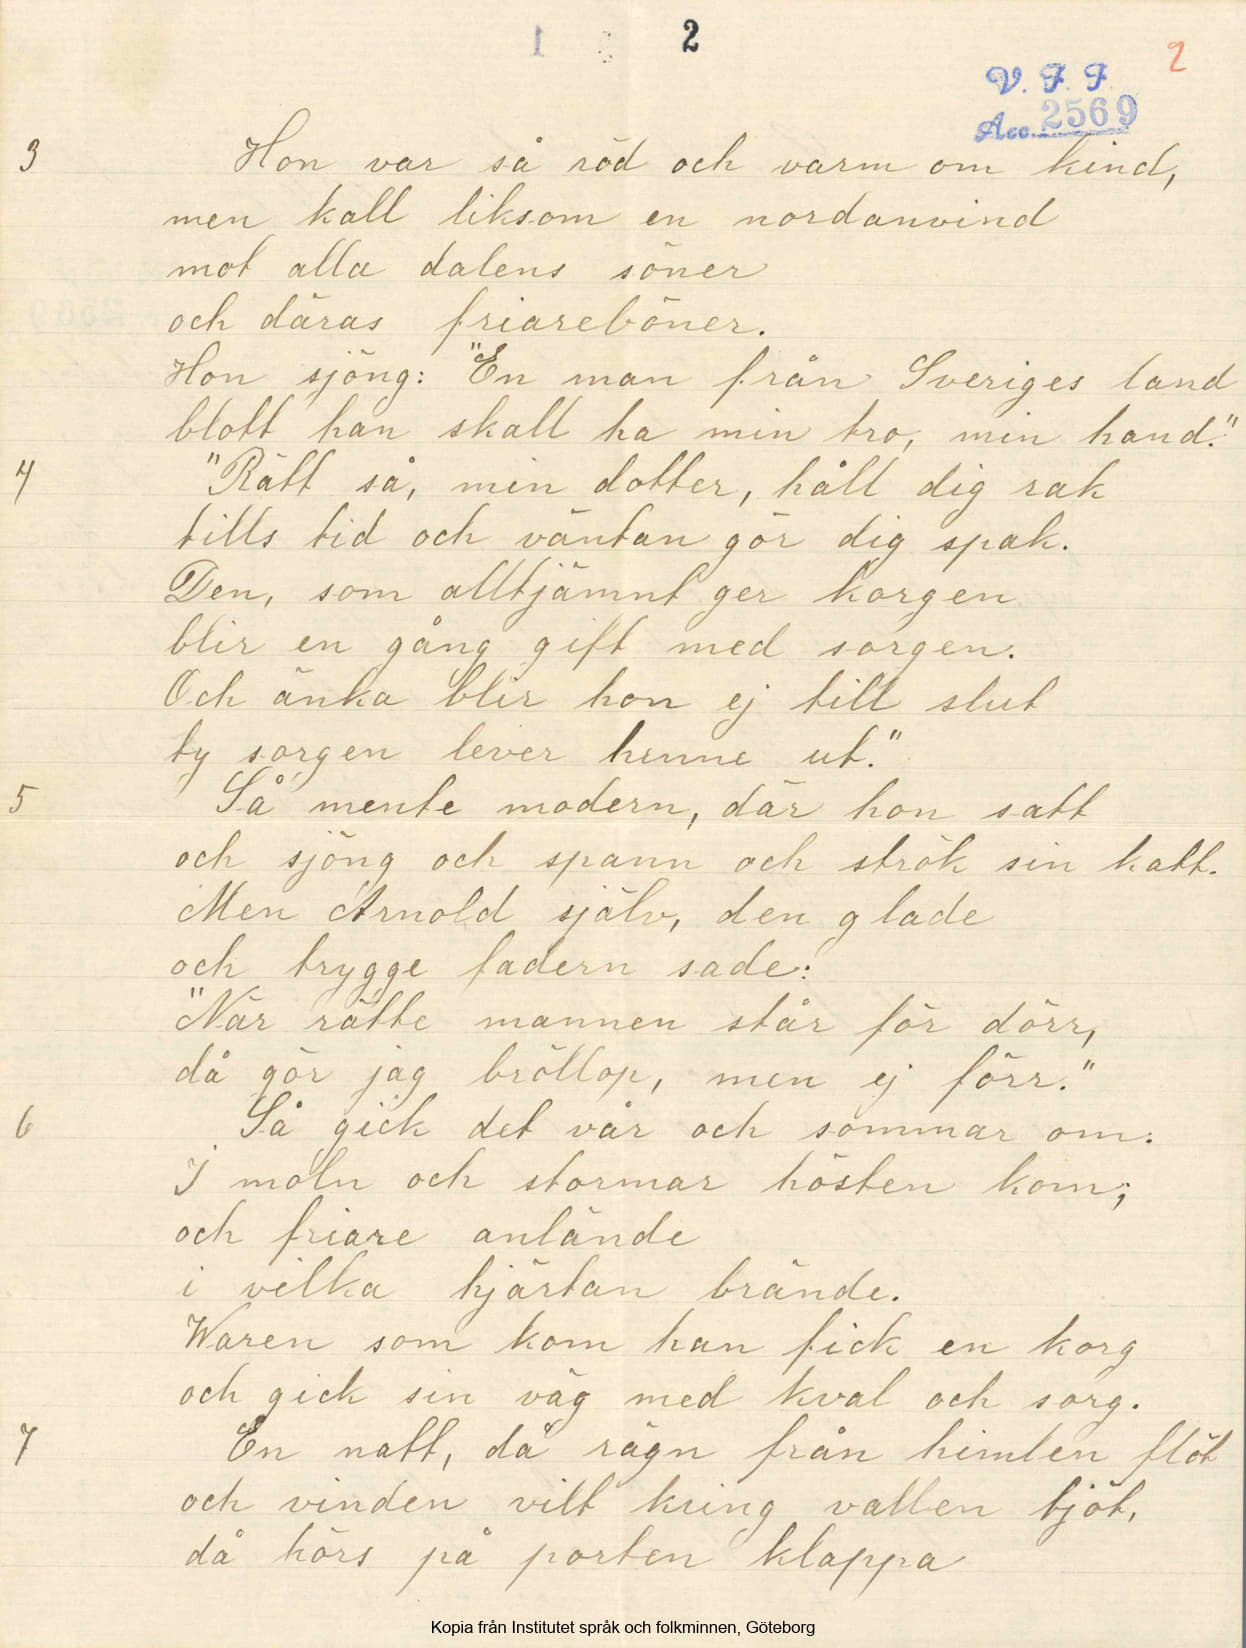 1 2
2
V. F. F.
Acc. 2569
3 Hon var så röd och varm om kind,
men kall liksom en nordanvind
mot alla dalens söner
och däras friareböner.
Hon sjöng: "En man från Sveriges land
blott han skall ha min tro, min hand."
4 "Rätt så, min dotter, håll dig rak
tills tid och väntan gör dig spak.
Den, som alltjämnt ger korgen
blir en gång gift med sorgen.
Och änka blir hon ej till slut
ty sorgen lever henne ut."
5 Så mente modern, där hon satt
och sjöng och spann och strök sin katt.
Men Arnold själv, den glade
och trygge fadern sade:
"När rätte mannen står för dörr,
då gör jag bröllop, men ej förr."
6 Så gick det vår och sommar om.
I moln och stormar hösten kom;
och friare anlände
i vilka hjärtan brände.
Waren som kom han fick en korg
och gick sin väg med kval och sorg.
7 En natt, då rägn från himlen flöt
och vinden vilt kring vallen tjöt,
då hörs på porten klappa
Kopia från Institutet språk och folkminnen, Göteborg